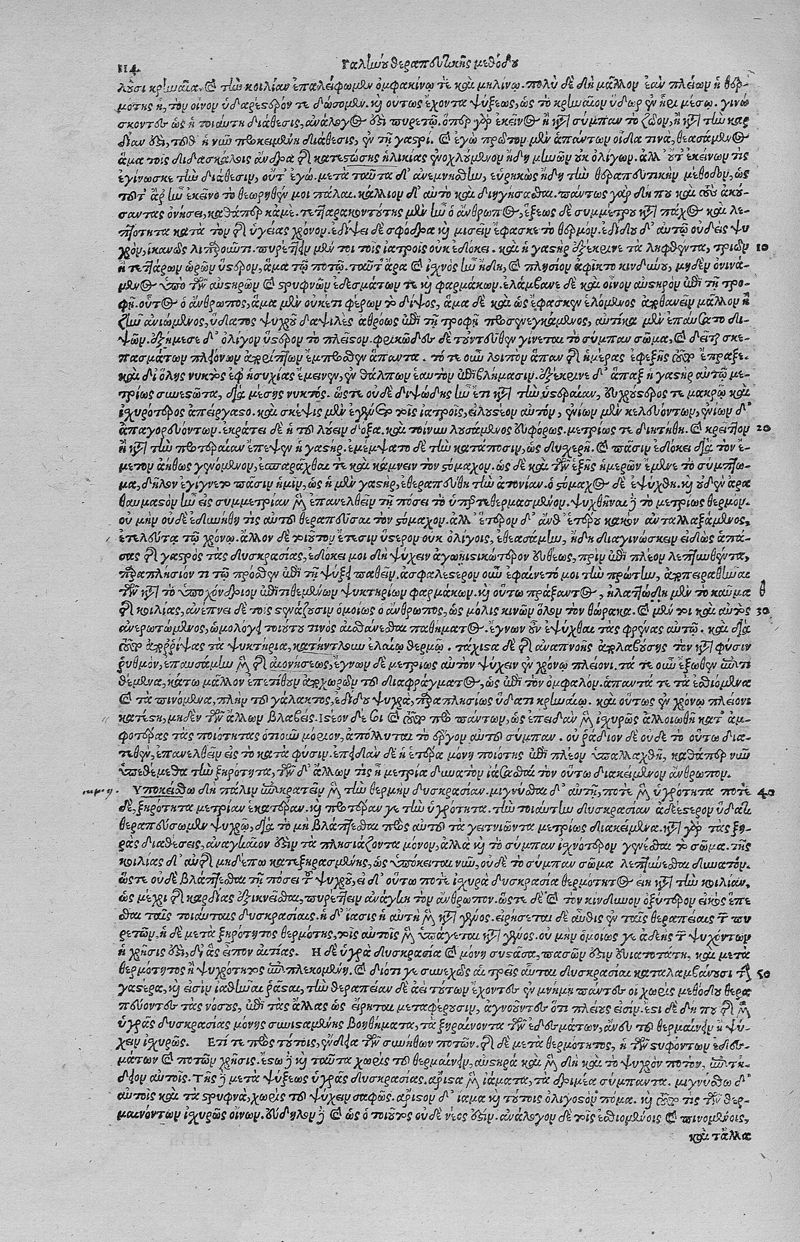 114 Γαληνοῦ θεραπευτικῆς μεθόδου
λουσι κρηναῖα. καὶ τὴν κοιλίαν ἐπαλείφωμεν ὀμφακίνῳ τε καὶ μηλίνῳ. πολὺ δὲ δὴ μᾶλλον ἐὰν πλείων ἡ θερ-
μότης ᾖ, τὸν οἶνον ὑδαρέστερόν τε δώσομεν. καὶ οὕτως ἔχοντα ψύξεως, ὡς τὸ κρηναῖον ὕδωρ ἐν ἦρι μέσῳ. γινώ
σκοντες ὡς ἡ τοιαύτη διάθεσις, ἀνάλογος ἐστὶ πυρετῷ. ὅπερ γὰρ ἐκεῖνος κατὰ τὸ ζῶον, ἢ κατὰ τὴν καρ
δίαν ἐστὶ, τοῦθ' ἡ νῦν προκειμένη διάθεσις, ἐν τῇ γαστρί. καὶ ἐγὼ πρῶτον μὲν ἁπάντων οἶδα τινὰ, θεασάμενος
ἅμα τοῖς διδασκάλοις ἄνδρα τῆς κατεστώσης ἡλικίας ἐνοχλούμενον ἤδη μηνῶν οὐκ ὀλίγων. ἀλλ' οὔτ' ἐκείνων τις
ἐγίνωσκε τὴν διάθεσιν, οὔτ' ἐγώ. μετὰ ταῦτα δ' ἀνεμνήσθην, εὑρηκὼς ἤδη τὴν θεραπευτικὴν μέθοδον, ὡς
τοῦτ' ἄρ' ἦν ἐκεῖνο τὸ θεωρηθέν μοι πάλαι. κάλλιον δ' αὐτὸ καὶ διηγήσασθαι. πάντως γάρ δή που καὶ σὲ ἀκού-
σαντας ὀνήσει, καθάπερ κᾀμέ. τετταρακοντούτης μὲν ἦν ὁ ἄνθρωπος, ἕξεως δὲ συμμέτρου κατὰ πάχος καὶ λε-
πτότητα κατὰ τὸν τῆς ὑγείας χρόνον. ἐδίψει δὲ σφόδρα καὶ μισεῖν ἔφασκε τὸ θερμόν. ἐδίδου δ' αὐτῷ οὐδεὶς ψυ
χρὸν, ἱκανῶς λιπαροῦντι. πυρέττειν μὲν τοι τοῖς ἰατροῖς οὐκ ἐδόκει. καὶ ἡ γαστὴρ ἐξέκρινε τὰ ληφθέντα, τριῶν 10
ἢ τεττάρων ὡρῶν ὕστερον, ἅμα τῷ ποτῷ. ταῦτ' ἄρα καὶ ἰσχνὸς ἦν ἤδη, καὶ πλησίον ἀφῖκτο κινδύνου, μηδὲν ὀνινά-
μενος ὑπὸ τῶν αὐστηρῶν καὶ στρυφνῶν ἐδεσμάτων τε καὶ φαρμάκων. ἐλάμβανε δὲ καὶ οἶνον αὐστηρὸν ἐπὶ τῇ τρο-
φῇ. οὗτος ὁ ἄνθρωπος, ἅμα μὲν οὐκέτι φέρων τὸ δίψος, ἅμα δὲ καὶ ὡς ἔφασκεν ἑλόμενος ἀποθανεῖν μᾶλλον ἢ
ζῆν ἀνιώμενος, ὕδατος ψυχροῦ δαψιλὲς ἀθρόως ἐπὶ τῇ τροφῇ προσενεγκάμενος, αὐτίκα μὲν ἐπαύσατο δι-
ψῶν. ἐξήμεσε δ' ὀλίγον ὕστερον τὸ πλεῖστον. φρικῶδες δὲ τοὐντεῦθεν γίνεται τὸ σύμπαν σῶμα, καὶ δεῖται σκε-
πασμάτων πλειόνων
καὶ δι' ὅλης νυκτὸς ἐφ' ἡσυχίας ἔμεινεν, ἐν θάλπων ἑαυτὸν ἐπιβλήμασιν. ἐξέκρινε δ' ἅπαξ ἡ γαστὴρ αὐτῷ με-
τρίως συνεστῶτα, διὰ μέσης νυκτός. ὥστε οὐδὲ διψώδης ἦν ἔτι κατὰ τὴν ὑστεραίαν, εὐχρούστερός τε μακρῷ καὶ
ἰσχυρότερος ἀπείργαστο. καὶ σκέψις μὲν ἐγένετο τοῖς ἰατροῖς, εἰ λουστέον αὐτὸν, ἐνίων μὲν κελευόντων, ἐνίων δ'
ἀπαγορευόντων. ἐκράτει δὲ ἡ τοῦ λούειν δόξα. καὶ τοίνυν λουσάμενος εὐφόρως. μετρίως τε διῃτήθη. καὶ κρεῖττον 20
ἢ κατὰ τὴν προτεραίαν ἔπεψεν ἡ γαστήρ. ἐμέμψατο δὲ τὴν κατάποσιν, ὡς δυσχερῆ. καὶ πᾶσιν ἐδόκει διὰ τὸν ἔ-
μετον ἀήθως γενόμενον, ἐσπαράχθαι τε καὶ κάμνειν τὸν στόμαχον. ὡς δὲ καὶ τῶν ἑξῆς ἡμερῶν ἔμενε τὸ σύμπτω-
μα, δῆλον ἐγίγνετο πᾶσιν ἡμῖν, ὡς ἡ μὲν γαστὴρ, ἐθεραπεύθη τὴν ἀτονίαν. ὁ στόμαχος δὲ ἐψύχθη. καὶ οὐδὲν ἄρα
θαυμαστὸν ἦν εἰς συμμετρίαν μὲν ἐπανελθεῖν τῇ πόσει τὸ ὑπερτεθερμασμένον. ψυχθῆναι δὲ τὸ μετρίως θερμόν.
οὐ μὴν οὐδὲ ἐδυνήθη τις αὐτοῦ θεραπεῦσαι τὸν στόμαχον. ἀλλ' ἕτερον δ' ἀνθ' ἑτέρου κακὸν ἀνταλλαξάμενος,
ἐτελεύτα τῷ χρόνῳ. ἄλλον δὲ τοιοῦτον ἔτεσιν ὕστερον οὐκ ὀλίγοις, ἐθεασάμην, ἤδη διαγινώσκειν εἰδὼς ἁπά-
σας τῆς γαστρὸς τὰς δυσκρασίας. ἐδόκει μοι δὴ ψύχειν ἀγωνιστικώτερον εὐθέως, πρὶν ἐπὶ πλέον λεπτυνθέντα,
παραπλήσιόν τι τῷ πρόσθεν ἐπὶ τῇ ψύξει παθεῖν. ἀσφαλέστερον οὖν ἐφαίνετό μοι τὴν πρώτην, ἀποπειραθῆναι
τῶν κατὰ τὸ ὑποχόνδριον ἐπιτιθεμένων ψυκτηρίων φαρμάκων. καὶ οὕτω πράξαντος, ἠλαττώθη μὲν τὸ καῦμα
τῆς κοιλίας, ἀνέπνει δὲ τοῖς στενάζουσιν ὁμοίως ὁ ἄνθρωπος, ὡς μόλις κινῶν ὅλον τὸν θώρακα. καὶ μέν τοι καὶ αὐτὸς 30
ἀνερωτώμενος, ὡμολόγει τοιούτου τινὸς αἰσθάνεσθαι παθήματος. ἔγνων οὖν ἐψύχθαι τὰς φρένας αὐτῷ. καὶ διὰ
τοῦτο ἀπορρίψας τὰ ψυκτήρια, κατήντλουν ἐλαίῳ θερμῷ. τάχιστα δὲ τῆς ἀναπνοῆς ἀπολαβούσης τὸν κατὰ φύσιν
ῥυθμὸν, ἐπαυσάμην μὲν τῆς αἰονήσεως, ἔγνων δὲ μετρίως αὐτὸν ψύχειν ἐν χρόνῳ πλείονι. τά τε οὖν ἔξωθεν ἐπιτι
θέμενα, κάτω μᾶλλον ἐπετίθουν ἀποχωρῶν τοῦ διαφράγματος, ὡς ἐπὶ τὸν ὀμφαλόν. ἅπαντά τε τὰ ἐσθιόμενα
καὶ τὰ πινόμενα, πλὴν τοῦ γάλακτος, ἐδίδουν ψυχρὰ, παραπλησίως ὕδατι κρηναίῳ. καὶ οὕτως ἐν χρόνῳ πλείονι
κατέστη, μηδὲν τῶν ἄλλων βλαβείς. ἰστέον δέ σοι καὶ τοῦτο πρὸ πάντων, ὡς ἐπειδὰν μὲν ἰσχυρῶς ἀλλοιωθῇ κατ' ἀμ-
φοτέρας τὰς ποιότητας ὁτιοῦν μόριον, ἀπόλλυται τὸ ἔργον αὐτοῦ σύμπαν. οὐ ῥᾴδιον δὲ οὐδὲ τὸ οὕτω δια-
τεθὲν, ἐπανελθεῖν εἰς τὸ κατὰ φύσιν. ἐπειδὰν δὲ ἡ ἑτέρα μόνη ποιότης ἐπὶ πλέον ὑπαλλαχθῇ, καθάπερ νῦν
ὑπεθέμεθα τὴν ξηρότητα, τῶν δ' ἄλλων τις ᾖ μετρία δυνατὸν ἰάσασθαι τὸν οὕτω διακείμενον ἄνθρωπον.
Ὑποκείσθω δὴ πάλιν ἐπικρατεῖν μὲν τὴν θερμὴν δυσκρασίαν. μιγνύσθω δ' αὐτῇ, ποτὲ μὲν ὑγρότητα ποτὲ 40
δὲ, ξηρότητα μετρίαν ἑκατέραν. καὶ προτέραν γε τὴν ὑγρότητα. τὴν τοιαύτην δυσκρασίαν ἀδεέστερον ὕδατι
θεραπεύσωμεν ψυχρῷ, διὰ τὸ μὴ βλάπτεσθαι πρὸς αὐτοῦ τὰ γειτνιῶντα μετρίως διακείμενα. κατὰ γὰρ τὰς ξη-
ρὰς διαθέσεις, ἀναγκαῖον ἐστὶν τὰ πλησιάζοντα μόνον, ἀλλὰ καὶ τὸ σύμπαν ἰσχνότερον γενέσθαι τὸ σῶμα. τῆς
κοιλίας δ' αὐτῆς μηδέπω κατεξηρασμένης, ὡς ὑπόκειται νῦν, οὐδὲ τὸ σύμπαν σῶμα λεπτύνεσθαι δυνατόν.
ὥστε οὐδὲ βλάπτεσθαι τῇ πόσει τοῦ ψυχροῦ. εἰ δ' οὕτω ποτὲ ἰσχυρὰ δυσκρασία θερμότητος εἴη κατὰ τὴν κοιλίαν,
ὡς μέχρι τῆς καρδίας ἐξικνεῖσθαι, πυρέττειν ἀνάγκη τὸν ἄνθρωπον. ὥστε δὲ καὶ τὸν κίνδυνον ὀξύτερον εἰκὸς ἕπε
σθαι ταῖς τοιαύταις δυσκρασίαις. ἡ δ' ἴασις ἡ αὐτὴ μὲν κατὰ γένος. εἰρήσεται δὲ αὖθις ἐν ταῖς θεραπείαις τῶν πυ
ρετῶν. ἡ δὲ μετὰ ξηρότητος θερμότης, τοῖς αὐτοῖς μὲν ὑπάγεται κατὰ γένος. οὐ μὴν ὁμοίως γε ἀδεὴς τῶν ψυχόντων
ἡ χρῆσις ἐστὶ, δι' ἃς εἶπον αἰτίας. Ἡ δὲ ὑγρὰ δυσκρασία καὶ μόνη συστᾶσα, πασῶν ἐστὶν εὐιατοτάτη, καὶ μετὰ
θερμότητος ἢ ψυχρότητος ἐπιπλεκομένη. καὶ διότι γε συνεχῶς αἱ τρεῖς αὗται δυσκρασίαι καταλαμβάνουσι τὴν 50
γαστέρα, καὶ εἰσὶν ἰαθῆναι ῥᾷσται, τὴν θεραπείαν δὲ ἀεὶ τούτων ἔχοντες ἐν μνήμῃ πάντες οἱ χωρὶς μεθόδου θερα
πεύοντες τὰς νόσους, ἐπὶ τὰς ἄλλας ὡς εἴρηται μεταφέρουσιν, ἀγνοοῦντες ὅτι πλείους εἰσίν. ἔστι δὲ δή που τῆς μὲν
ὑγρᾶς δυσκρασίας μόνης συνισταμένης βοηθήματα, τὰ ξηραίνοντα τῶν ἐδεσμάτων, ἄνευ τοῦ θερμαίνειν ἢ ψύ-
χειν ἰσχυρῶς. Ἔτι τε πρὸς τούτοις, ἔνδεια τῶν συνήθων ποτῶν. τῆς δὲ μετὰ θερμότητος, ἡ τῶν στυφόντων ἐδεσ-
μάτων καὶ ποτῶν χρῆσις. ἔστω δὲ καὶ ταῦτα χωρὶς τοῦ θερμαίνειν, αὐστηρὰ καὶ μὲν δὴ καὶ τὸ ψυχρὸν ποτὸν, ἐπιτή-
δειον αὐτοῖς. Τῆς δὲ μετὰ ψύξεως ὑγρᾶς δυσκρασίας, ἄριστα μὲν ἰάματα, τὰ δριμέα σύμπαντα. μιγνύσθω δ'
αὐτοῖς καὶ τὰ στρυφνὰ, χωρὶς τοῦ ψύχειν σαφῶς. ἄριστον δ' ἴαμα καὶ τούτοις ὀλιγοστὸν πόμα. καὶ τοῦτό τις τῶν θερ-
μαινόντων ἰσχυρῶς οἴνων. εὔδηλον δὲ καὶ ὡς ὁ τοιοῦτος οὐδὲ νέος ἐστίν. ἀνάλογον δὲ τοῖς ἐσθιομένοις καὶ πινομένοις,
καὶ τἄλλα